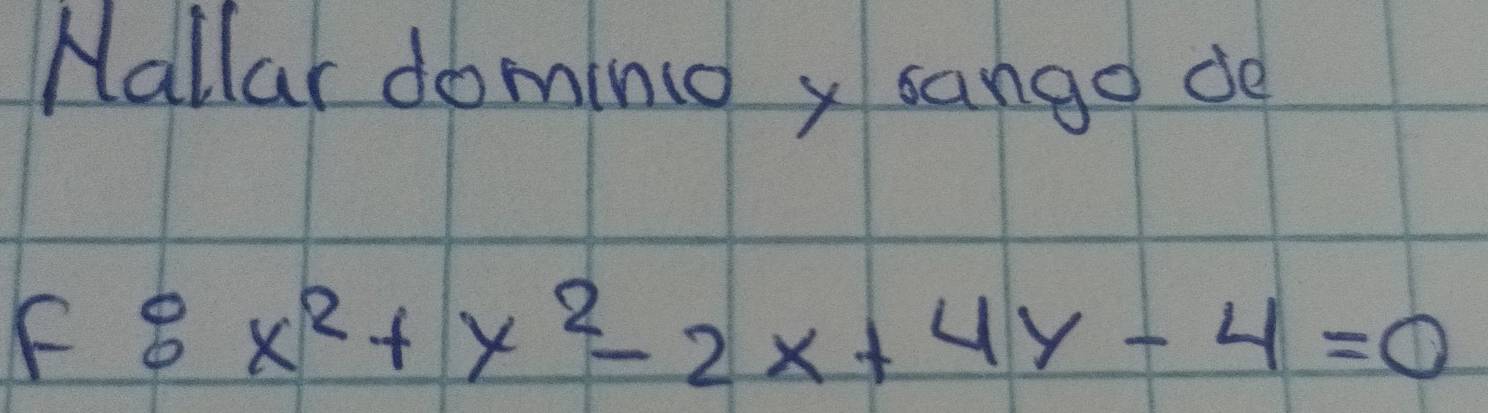 Hallar dominio y rango de
F : x² + y² - 2x + 4y - 4 = 0